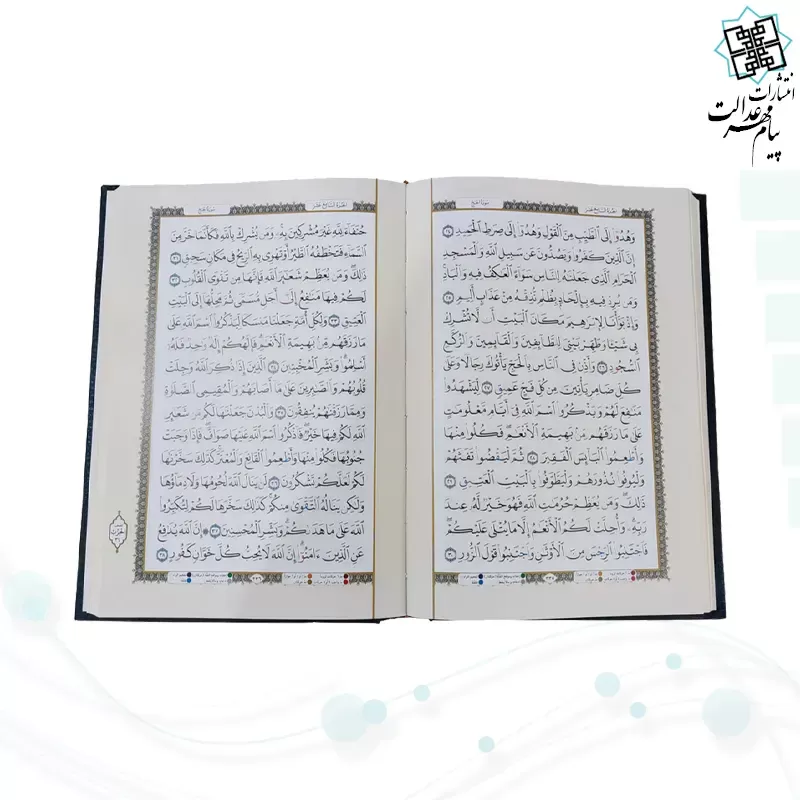 انتشارات
پیام مهر عدالت
الجزء السابع عشر
سورة الحج
وَهُدُوا إِلَى الطَّيِّبِ مِنَ الْقَوْلِ وَهُدُوا إِلَى صِرَاطِ الْحَمِيدِ ﴿٢٤﴾
إِنَّ الَّذِينَ كَفَرُوا وَيَصُدُّونَ عَن سَبِيلِ اللَّهِ وَالْمَسْجِدِ
الْحَرَامِ الَّذِي جَعَلْنَاهُ لِلنَّاسِ سَوَاءً الْعَاكِفُ فِيهِ وَالْبَادِ
وَمَن يُرِدْ فِيهِ بِإِلْحَادٍ بِظُلْمٍ نُّذِقْهُ مِنْ عَذَابٍ أَلِيمٍ ﴿٢٥﴾
وَإِذْ بَوَّأْنَا لِإِبْرَاهِيمَ مَكَانَ الْبَيْتِ أَن لَّا تُشْرِكْ
بِي شَيْئًا وَطَهِّرْ بَيْتِيَ لِلطَّائِفِينَ وَالْقَائِمِينَ وَالرُّكَّعِ
السُّجُودِ ﴿٢٦﴾ وَأَذِّن فِي النَّاسِ بِالْحَجِّ يَأْتُوكَ رِجَالًا وَعَلَى
كُلِّ ضَامِرٍ يَأْتِينَ مِن كُلِّ فَجٍّ عَمِيقٍ ﴿٢٧﴾ لِّيَشْهَدُوا
مَنَافِعَ لَهُمْ وَيَذْكُرُوا اسْمَ اللَّهِ فِي أَيَّامٍ مَّعْلُومَاتٍ
عَلَى مَا رَزَقَهُم مِّن بَهِيمَةِ الْأَنْعَامِ فَكُلُوا مِنْهَا
وَأَطْعِمُوا الْبَائِسَ الْفَقِيرَ ﴿٢٨﴾ ثُمَّ لْيَقْضُوا تَفَثَهُمْ
وَلْيُوفُوا نُذُورَهُمْ وَلْيَطَّوَّفُوا بِالْبَيْتِ الْعَتِيقِ ﴿٢٩﴾
ذَلِكَ وَمَن يُعَظِّمْ حُرُمَاتِ اللَّهِ فَهُوَ خَيْرٌ لَّهُ عِندَ
رَبِّهِ وَأُحِلَّتْ لَكُمُ الْأَنْعَامُ إِلَّا مَا يُتْلَى عَلَيْكُمْ
فَاجْتَنِبُوا الرِّجْسَ مِنَ الْأَوْثَانِ وَاجْتَنِبُوا قَوْلَ الزُّورِ ﴿٣٠﴾
الجزء السابع عشر
سورة الحج
حُنَفَاءَ لِلَّهِ غَيْرَ مُشْرِكِينَ بِهِ وَمَن يُشْرِكْ بِاللَّهِ فَكَأَنَّمَا خَرَّ مِنَ
السَّمَاءِ فَتَخْطَفُهُ الطَّيْرُ أَوْ تَهْوِي بِهِ الرِّيحُ فِي مَكَانٍ سَحِيقٍ ﴿٣١﴾
ذَلِكَ وَمَن يُعَظِّمْ شَعَائِرَ اللَّهِ فَإِنَّهَا مِن تَقْوَى الْقُلُوبِ ﴿٣٢﴾
لَكُمْ فِيهَا مَنَافِعُ إِلَى أَجَلٍ مُّسَمًّى ثُمَّ مَحِلُّهَا إِلَى الْبَيْتِ
الْعَتِيقِ ﴿٣٣﴾ وَلِكُلِّ أُمَّةٍ جَعَلْنَا مَنسَكًا لِّيَذْكُرُوا اسْمَ اللَّهِ عَلَى
مَا رَزَقَهُم مِّن بَهِيمَةِ الْأَنْعَامِ فَإِلَهُكُمْ إِلَهٌ وَاحِدٌ فَلَهُ
أَسْلِمُوا وَبَشِّرِ الْمُخْبِتِينَ ﴿٣٤﴾ الَّذِينَ إِذَا ذُكِرَ اللَّهُ وَجِلَتْ
قُلُوبُهُمْ وَالصَّابِرِينَ عَلَى مَا أَصَابَهُمْ وَالْمُقِيمِي الصَّلَاةِ
وَمِمَّا رَزَقْنَاهُمْ يُنفِقُونَ ﴿٣٥﴾ وَالْبُدْنَ جَعَلْنَاهَا لَكُم مِّن شَعَائِرِ
اللَّهِ لَكُمْ فِيهَا خَيْرٌ فَاذْكُرُوا اسْمَ اللَّهِ عَلَيْهَا صَوَافَّ فَإِذَا وَجَبَتْ
جُنُوبُهَا فَكُلُوا مِنْهَا وَأَطْعِمُوا الْقَانِعَ وَالْمُعْتَرَّ كَذَلِكَ سَخَّرْنَاهَا
لَكُمْ لَعَلَّكُمْ تَشْكُرُونَ ﴿٣٦﴾ لَن يَنَالَ اللَّهَ لُحُومُهَا وَلَا دِمَاؤُهَا
وَلَكِن يَنَالُهُ التَّقْوَى مِنكُمْ كَذَلِكَ سَخَّرَهَا لَكُمْ لِتُكَبِّرُوا
اللَّهَ عَلَى مَا هَدَاكُمْ وَبَشِّرِ الْمُحْسِنِينَ ﴿٣٧﴾ إِنَّ اللَّهَ يُدَافِعُ
عَنِ الَّذِينَ آمَنُوا إِنَّ اللَّهَ لَا يُحِبُّ كُلَّ خَوَّانٍ كَفُورٍ ﴿٣٨﴾